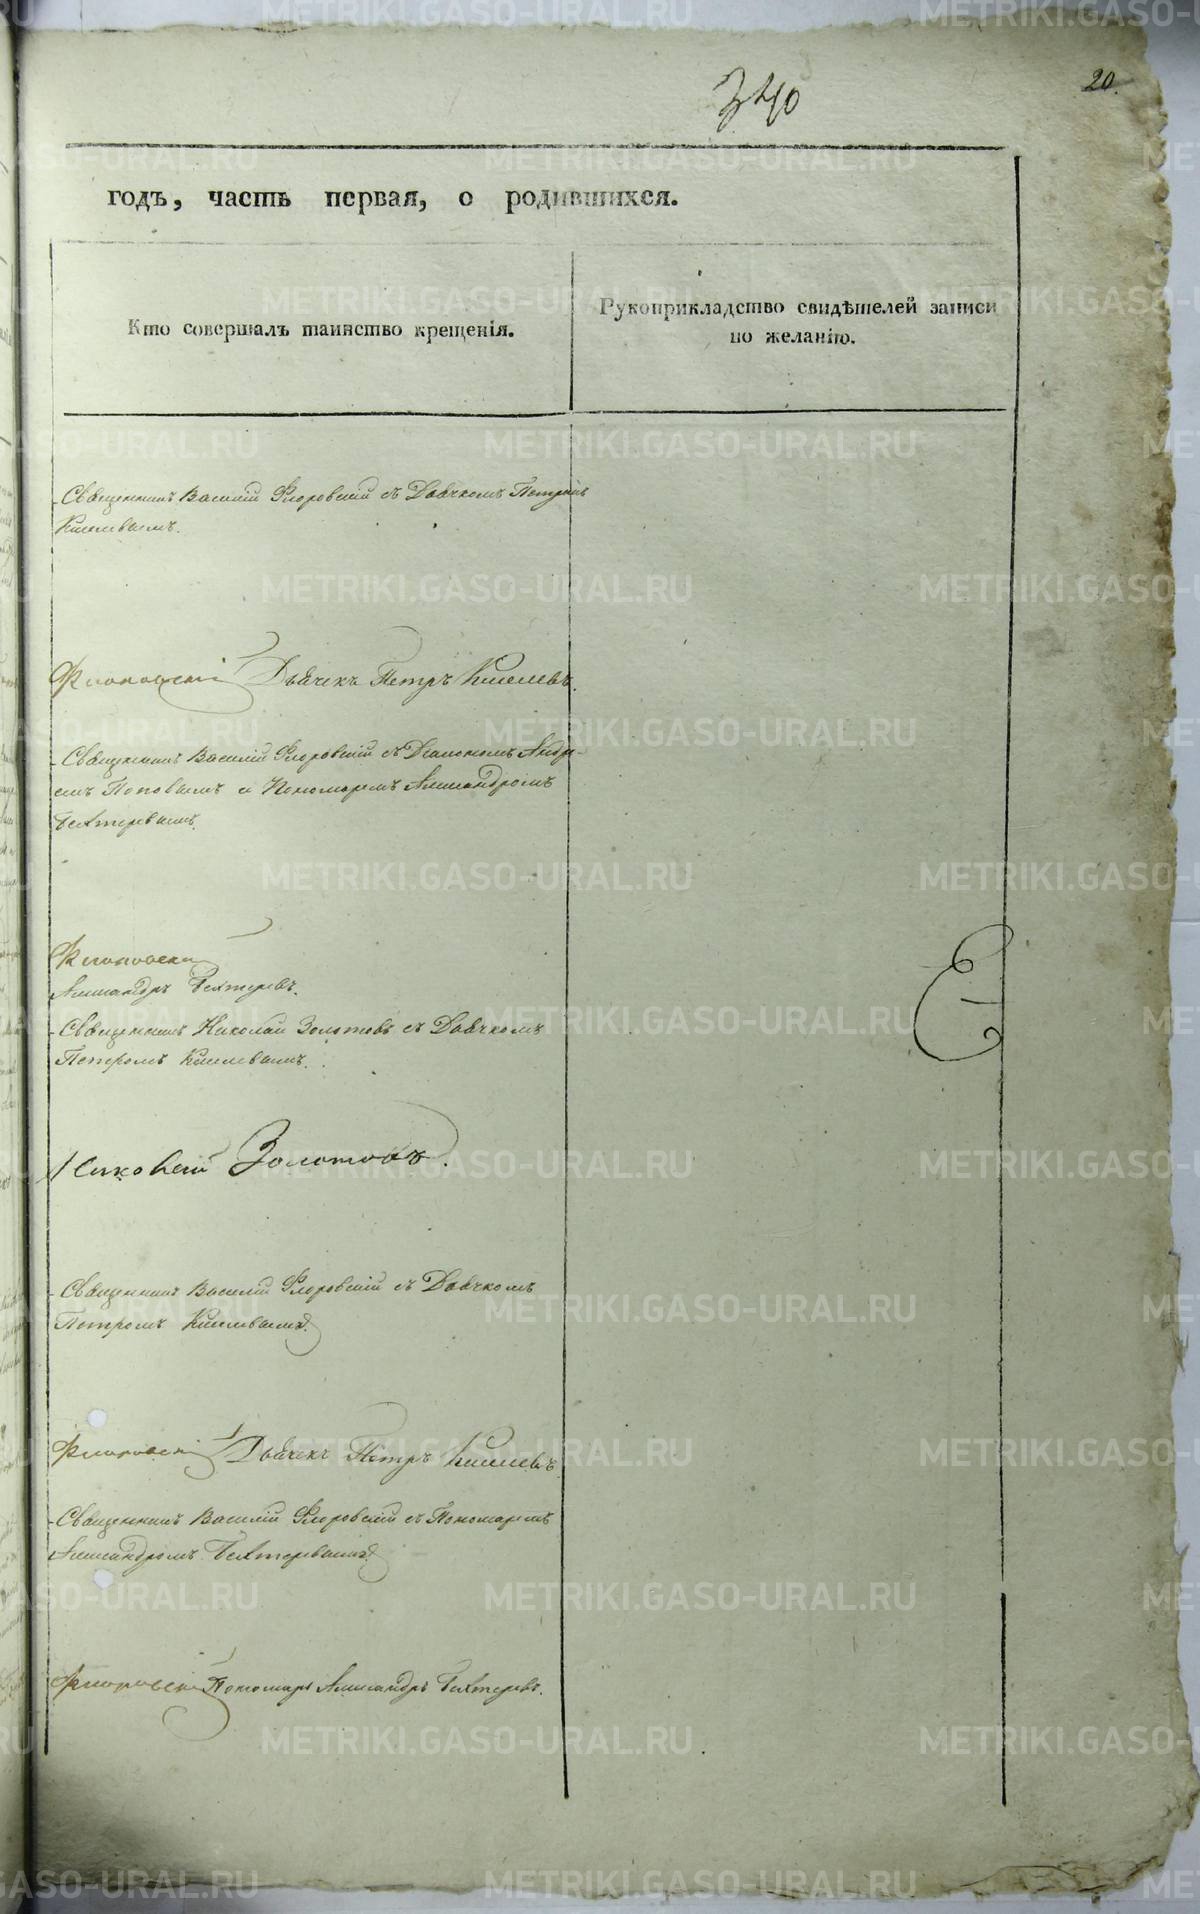 340
20.
годъ, часть первая, о родившихся.
Кто совершалъ таинство крещенія.
Рукоприкладство свидѣтелей записи
по желанію.
Священникъ Василій Флоровскій съ Дьячкомъ Петромъ
Киселевымъ.
Флоровскій Дьячекъ Петръ Киселевъ.
Священникъ Василій Флоровскій съ Діакономъ Андре-
емъ Поповымъ и Пономаремъ Александромъ
Бехтеревымъ.
Флоровскій
Александръ Бехтеревъ.
Священникъ Николай Золотовъ съ Дьячкомъ
Петромъ Киселевымъ.
Николай Золотовъ.
Священникъ Василій Флоровскій съ Дьячкомъ
Петромъ Киселевымъ.
Флоровскій Дьячекъ Петръ Киселевъ
Священникъ Василій Флоровскій съ Пономаремъ
Александромъ Бехтеревымъ.
Флоровскій Пономарь Александръ Бехтеревъ.
METRIKI.GASO-URAL.RU